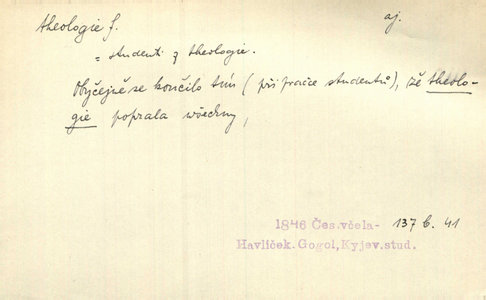 theologie f.
aj.
= studenti z theologie.
Obyčejně se končilo tím (při pračce studentů), že theolo-
gie poprala všechny,
1846 Čes.včela- 137 b. 41
Havlíček. Gogol, Kyjev.stud.